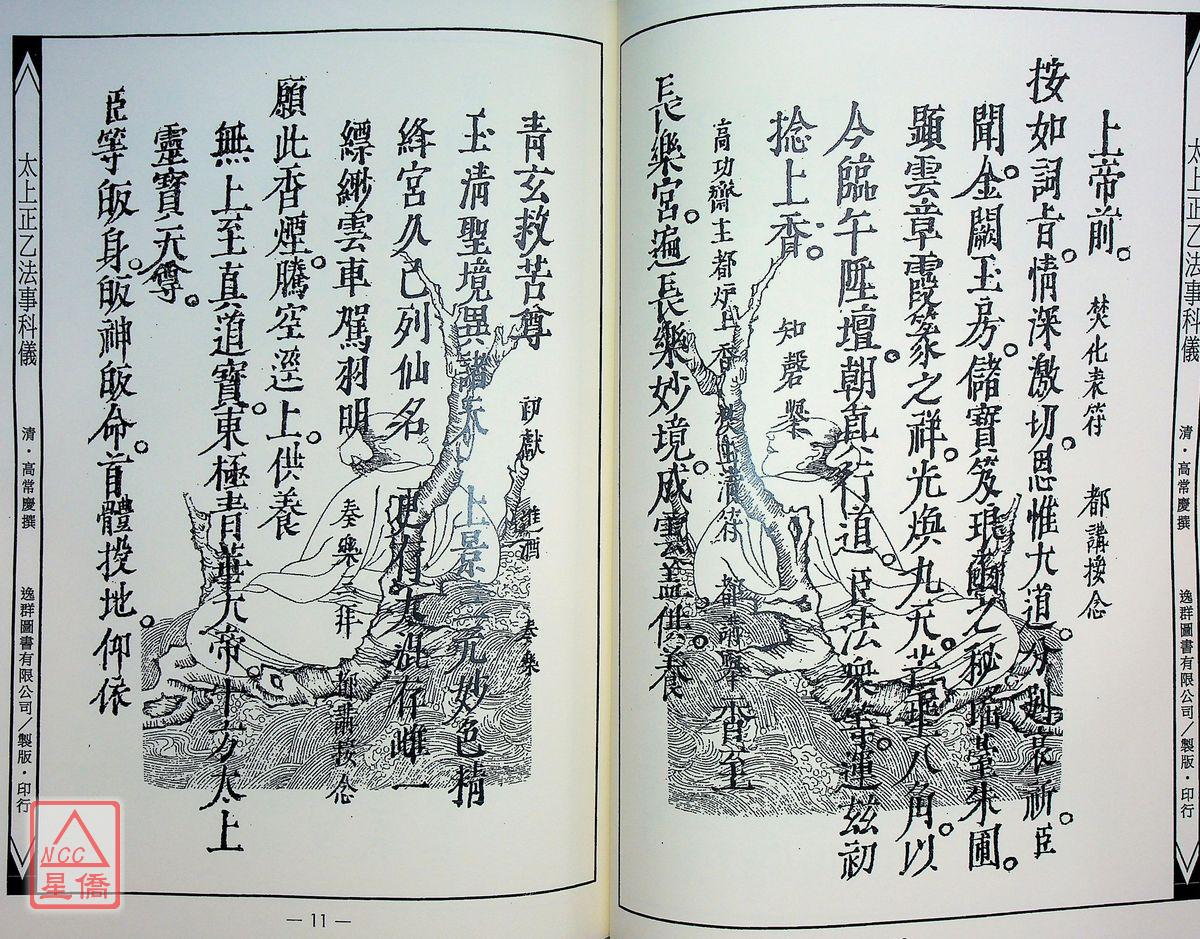 太上正乙法事科儀
清・高常慶撰
逸群圖書有限公司／製版・印行
上帝前。 焚化表符 都講接念
按如詞旨。情深激切。恩惟大道。分
祈。臣
聞。金闕玉房。儲寶笈琅 之秘。瑤臺朱圃。
顯雲章霞篆之祥。光煥九天。芒 八角。以
今臨午陞壇。朝真行道。臣法眾等。運玆初
捻上香。 知磬舉
高功齋主都炉上香 都講舉 香至
長樂宮。遍長樂妙境。成雲蓋供養
青玄救苦尊 初獻 進酒 奏樂
玉清聖境異諸 上景 妙色精
絳宮久已列仙名 更有 混存雌一
縹緲雲車駕羽明 奏樂三拜 都講接念
願此香煙。騰空逕上。供養
無上至真道寶。東極青華大帝。十方太上
靈寶天尊。
臣等皈身。皈神皈命。首體投地。仰依
太上正乙法事科儀
清・高常慶撰
逸群圖書有限公司／製版・印行
— 11 —
NCC
星僑